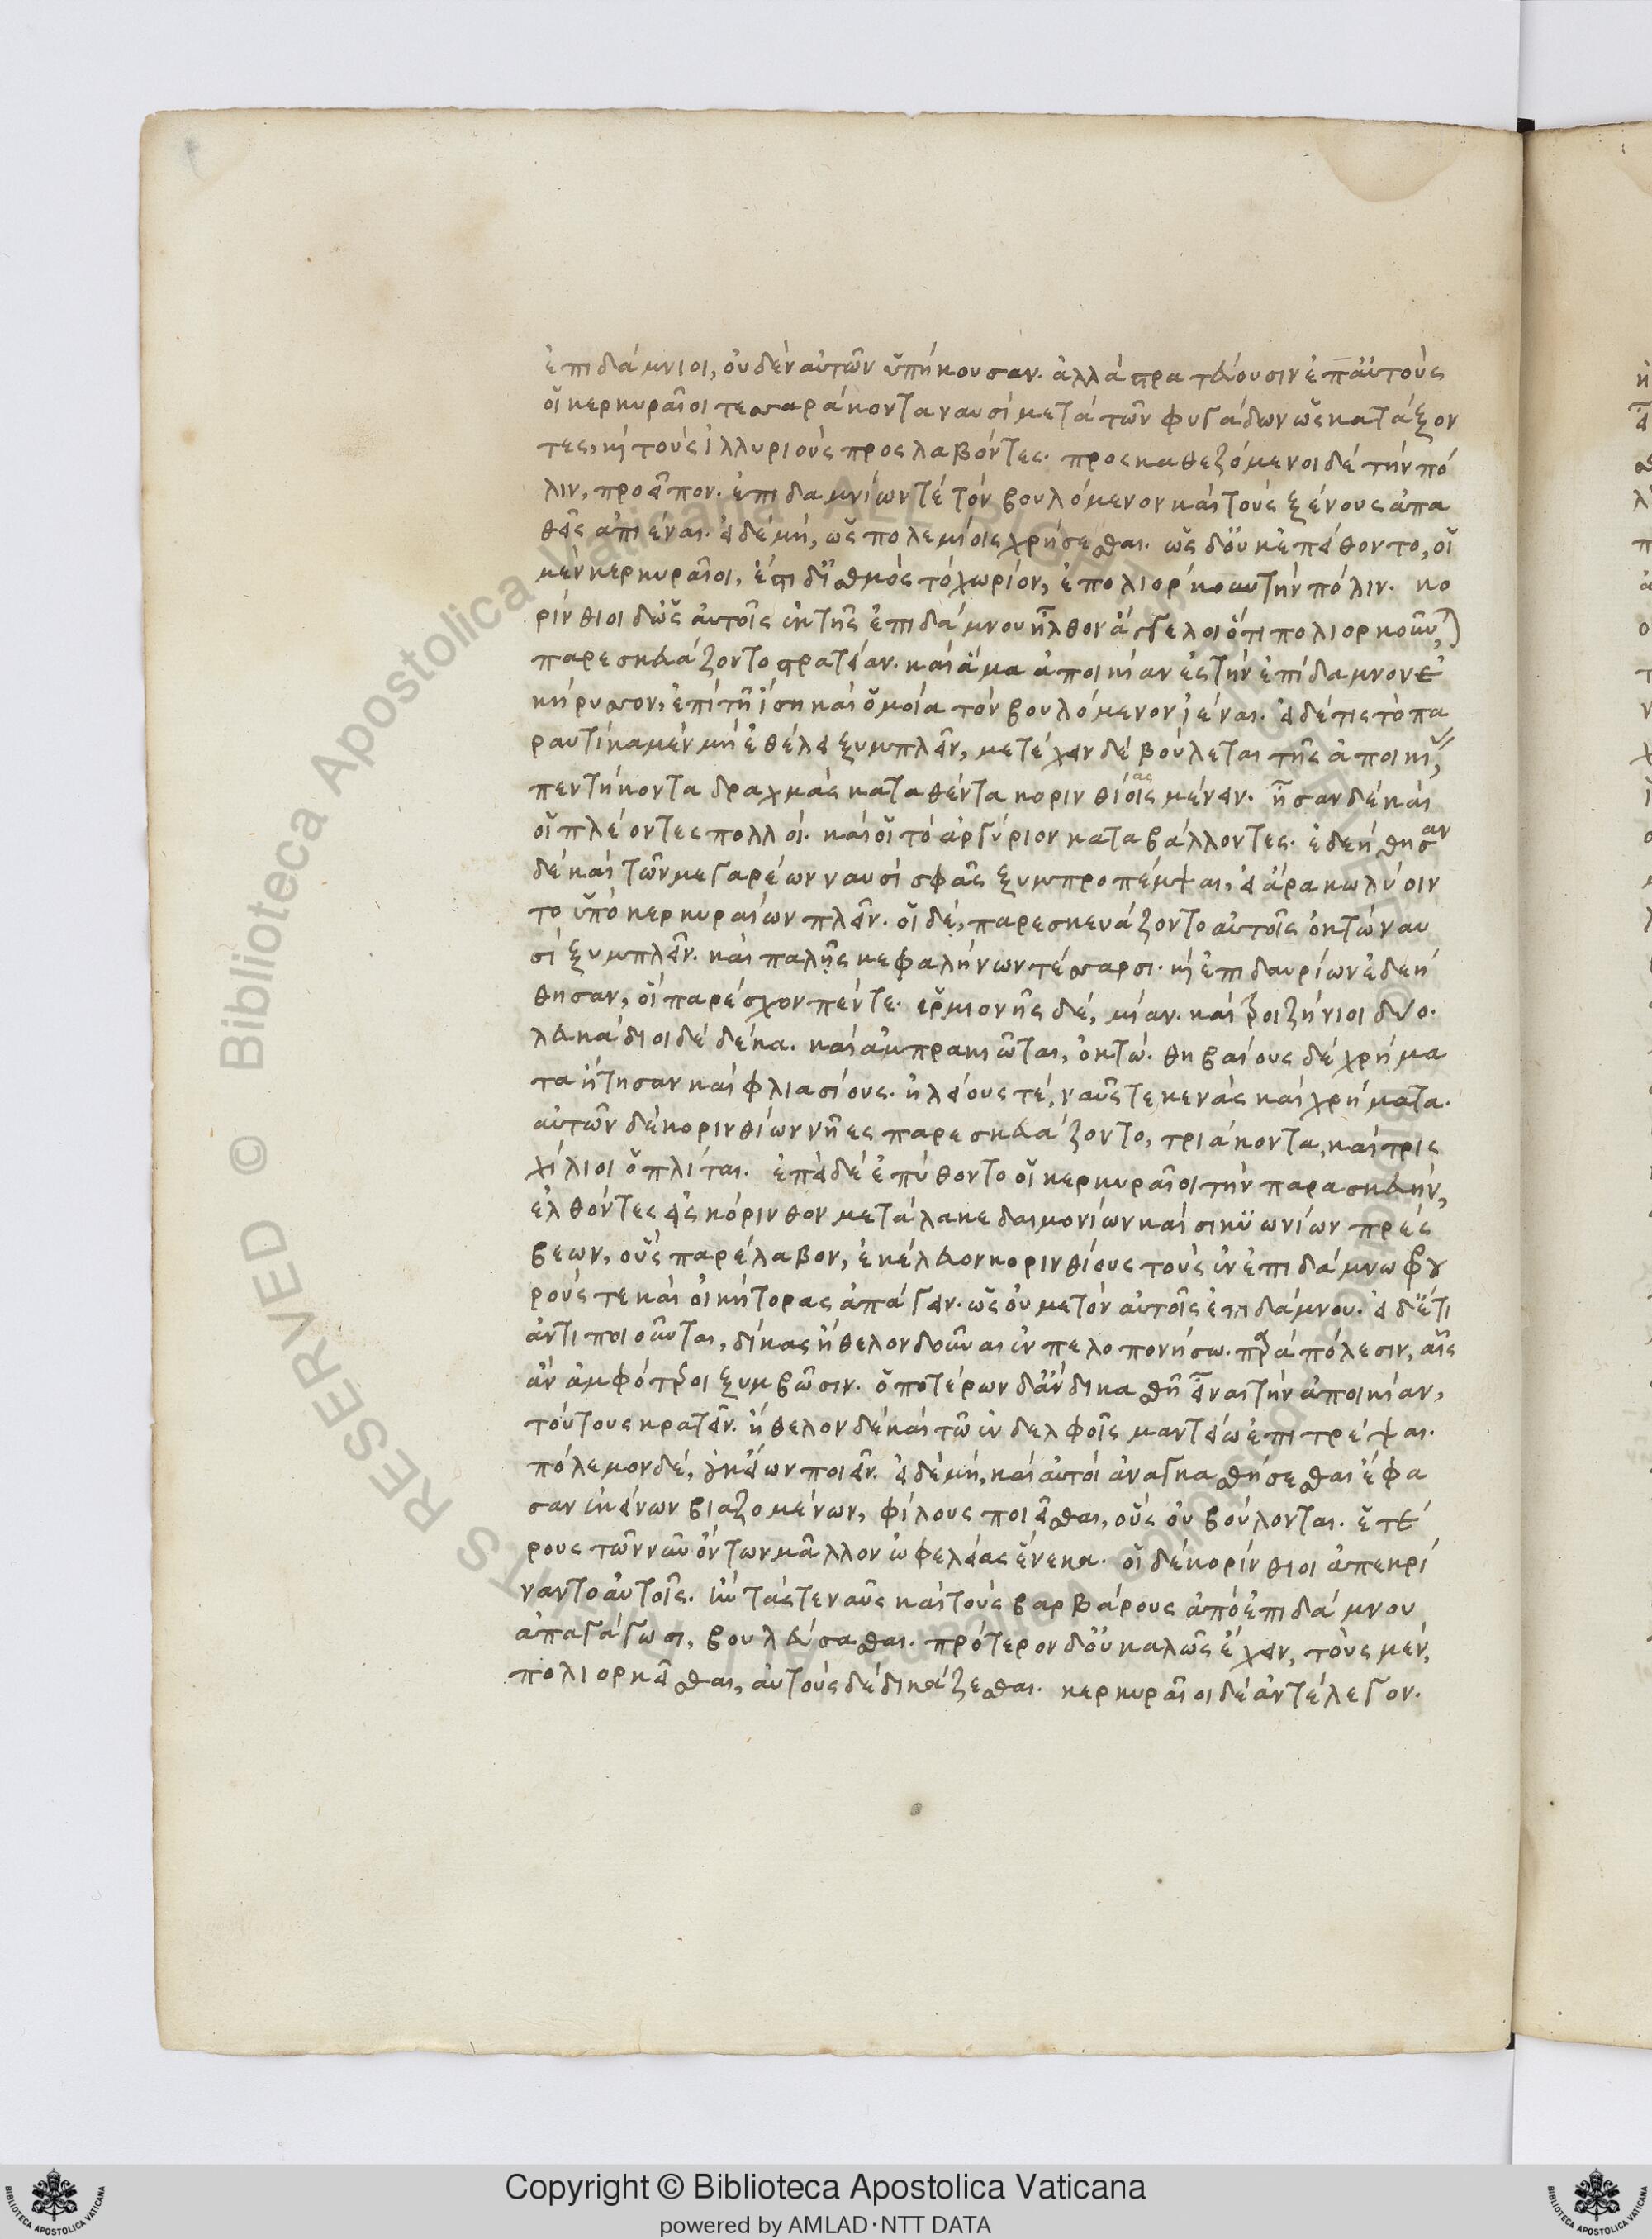 ἐπιδάμνιοι, οὐδὲν αὐτῶν ὑπήκουσαν. ἀλλὰ στρατεύουσιν ἐπ' αὐτοὺς
οἱ κερκυραῖοι τεσσαράκοντα ναυσὶ μετὰ τῶν φυγάδων ὡς κατάξον
τες, καὶ τοὺς ἰλλυριοὺς προσλαβόντες. προσκαθεζόμενοι δὲ τὴν πό
λιν, προεῖπον. ἐπιδαμνίων τὲ τὸν βουλόμενον καὶ τοὺς ξένους ἀπα
θεῖς ἀπιέναι. εἰ δὲ μὴ, ὡς πολεμίοις χρήσεσθαι. ὡς δ' οὐκ ἐπείθοντο, οἱ
μὲν κερκυραῖοι, ἔστι δ' ἰσθμὸς τὸ χωρίον, ἐπολιόρκουν τὴν πόλιν. κο
ρίνθιοι δ' ὡς αὐτοῖς ἐκ τῆς ἐπιδάμνου ἦλθον ἄγγελοι ὅτι πολιορκοῦνται
παρεσκευάζοντο στρατείαν. καὶ ἅμα ἀποικίαν ἐς τὴν ἐπίδαμνον ἐ
κήρυσσον, ἐπὶ τῇ ἴσῃ καὶ ὁμοία τὸν βουλόμενον ἰέναι. εἰ δέ τις τὸ πα
ραυτίκα μὲν μὴ ἐθέλει ξυμπλεῖν, μετέχειν δὲ βούλεται τῆς ἀποικίας,
πεντήκοντα δραχμὰς καταθέντα κορινθίοις ας μένειν. ἦσαν δὲ καὶ
οἱ πλέοντες πολλοί. καὶ οἱ τὸ ἀργύριον καταβάλλοντες. ἐδεήθησαν
δὲ καὶ τῶν μεγαρέων ναυσὶ σφᾶς ξυμπροπέμψαι, εἰ ἄρα κωλύοιν
το ὑπὸ κερκυραίων πλεῖν. οἱ δὲ, παρεσκευάζοντο αὐτοῖς ὀκτὼ ναυ
σὶ ξυμπλεῖν. καὶ παλῆς κεφαλήνων τέσσαρσι. καὶ ἐπιδαυρίων ἐδεή
θησαν, οἳ παρέσχον πέντε. ἑρμιονῆς δὲ, μίαν. καὶ τροιζήνιοι δύο.
λευκάδιοι δὲ δέκα. καὶ ἀμπρακιῶται, ὀκτώ. θηβαίους δὲ χρήμα
τα ᾔτησαν καὶ φλιασίους. ἠλείους τέ, ναῦς τε κενὰς καὶ χρήματα.
αὐτῶν δὲ κορινθίων νῆες παρεσκευάζοντο, τριάκοντα, καὶ τρισ
χίλιοι ὁπλίται. ἐπεὶ δὲ ἐπύθοντο οἱ κερκυραῖοι τὴν παρασκευήν,
ἐλθόντες εἰς κόρινθον μετὰ λακεδαιμονίων καὶ σικυωνίων πρέσ
βεων, οὓς παρέλαβον, ἐκέλευον κορινθίους τοὺς ἐν ἐπιδάμνω φρου
ρούς τε καὶ οἰκήτορας ἀπάγειν. ὡς οὐ μετὸν αὐτοῖς ἐπιδάμνου. εἰ δ' ἔτι
ἀντιποιοῦνται, δίκας ἤθελον δοῦναι ἐν πελοπονήσω. παρὰ πόλεσιν, αἷς
ἂν ἀμφότεροι ξυμβῶσιν. ὁποτέρων δ' ἂν δικασθῇ εἶναι τὴν ἀποικίαν,
τούτους κρατεῖν. ἤθελον δὲ καὶ τῶ ἐν δελφοῖς μαντείω ἐπιτρέψαι.
πόλεμον δὲ, οὐκ εἴων ποιεῖν. εἰ δὲ μὴ, καὶ αὐτοὶ ἀναγκασθήσεσθαι ἔφα
σαν ἐκείνων βιαζομένων, φίλους ποιεῖσθαι, οὓς οὐ βούλονται. ἑτέ
ρους τῶν νῦν ὄντων μᾶλλον ὠφελείας ἕνεκα. οἱ δὲ κορίνθιοι ἀπεκρί
ναντο αὐτοῖς. ἢν τάς τε ναῦς καὶ τοὺς βαρβάρους ἀπὸ ἐπιδάμνου
ἀπαγάγωσι, βουλεύσασθαι. πρότερον δ' οὐ καλῶς ἔχειν, τοὺς μὲν,
πολιορκεῖσθαι, αὐτοὺς δὲ δικάζεσθαι. κερκυραῖοι δὲ ἀντέλεγον.
Copyright © Biblioteca Apostolica Vaticana
powered by AMLAD·NTT DATA